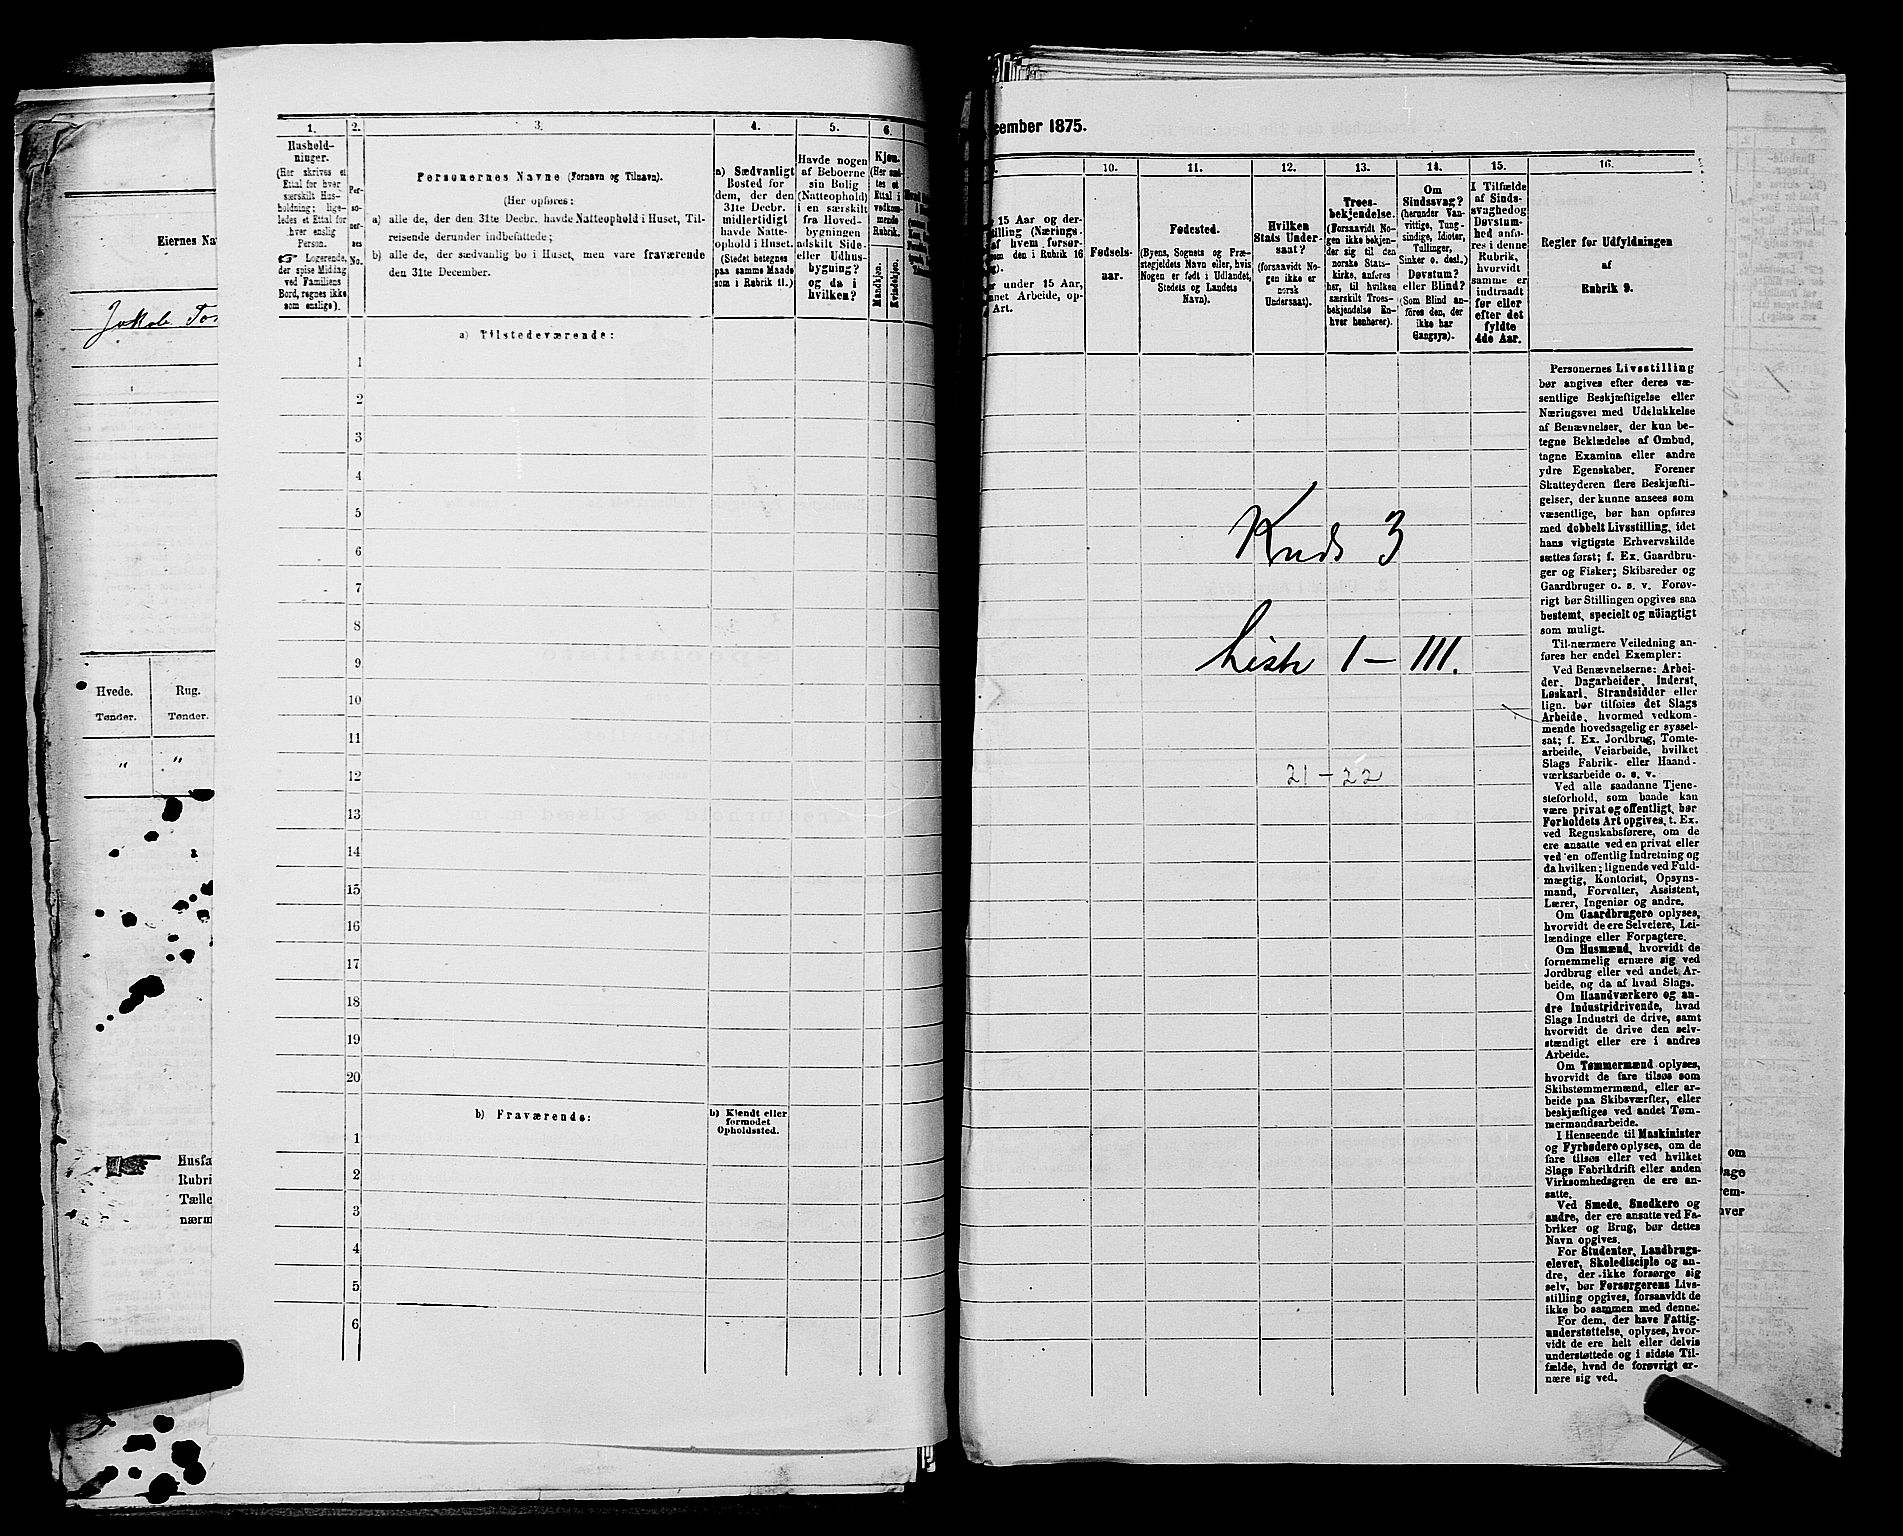 Eiernes Na
Jakob To
Hvede.
Rug.
Tønder.
Tønder.
"
"
Husfa
Rubri
Tælle
nærm
1.
2.
3.
4.
5.
6.
Hushold-
ninger.
(Her skrives et
Ettal for hver
særskilt Hus-
holdning; lige-
ledes et Ettal for
hver enslig
Person.
☞ Logerende,
der spise Middag
ved Familiens
Bord, regnes ikke
som enslige).
Per-
so-
ner-
nes
No.
Personernes Navne (Fornavn og Tilnavn).
(Her opføres:
a) alle de, der den 31te Decbr. havde Natteophold i Huset, Til-
reisende derunder indbefattede;
b) alle de, der sædvanlig bo i Huset, men vare fraværende
den 31te December.
a) Sædvanligt
Bosted for
dem, der den
31te Decbr.
midlertidigt
havde Natte-
ophold i Huset.
(Stedet betegnes
paa samme Maade
som i Rubrik 11.)
Havde nogen
af Beboerne
sin Bolig
(Natteophold)
i en særskilt
fra Hoved-
bygningen
adskilt Side-
eller Udhus-
bygning?
og da i
hvilken?
Kjøn.
(Her sæt-
tes et
Ettal i
vedkom-
mende
Rubrik.
Mandkjøn.
Kvindekjøn.
a) Tilstedeværende:
1
2
3
4
5
6
7
8
9
10
11
12
13
14
15
16
17
18
19
20
b) Fraværende:
b) Kjendt eller
formodet
Opholdssted.
1
2
3
4
5
6
cember 1875.
10.
11.
12.
13.
14.
15.
16.
15 Aar og der-
illing (Nærings-
af hvem forsør-
em den i Rubrik 16
g).
under 15 Aar,
net Arbeide, op-
Art.
Fødsels-
aar.
Fødested.
(Byens, Sognets og Præ-
stegjeldets Navn eller, hvis
Nogen er født i Udlandet,
Stedets og Landets
Navn).
Hvilken
Stats Under-
saat?
(forsaavidt No-
gen ikke er
norsk
Undersaat).
Troes-
bekjendelse.
(Forsaavidt No-
gen ikke bekjen-
der sig til den
norske Stats-
kirke, anføres
her, til hvilken
særskilt Troes-
bekjendelse En-
hver henhører).
Om
Sindssvag?
(herunder Van-
vittige, Tung-
sindige, Idioter,
Tullinger,
Sinker o. desl.)
Døvstum?
eller Blind?
(Som Blind an-
føres den, der
ikke har
Gangsyn).
I Tilfælde
af Sinds-
svaghed og
Døvstum-
hed anfø-
res i denne
Rubrik,
hvorvidt
samme er
indtraadt
før eller
efter det
fyldte
4de Aar.
Regler for Udfyldningen
af
Rubrik 9.
Knds 3
Liste I – III.
21 – 22
Personernes Livsstilling
bør angives efter deres væ-
sentlige Beskjæftigelse eller
Næringsvei med Udelukkelse
af Benævnelser, der kun be-
tegne Beklædelse af Ombud,
tagne Examina eller andre
ydre Egenskaber. Forener
Skatteyderen flere Beskjæfti-
gelser, der kunne ansees som
væsentlige, bør han opføres
med dobbelt Livsstilling, idet
hans vigtigste Erhvervskilde
sættes først; f. Ex. Gaardbru-
ger og Fisker; Skibsreder og
Gaardbruger o. s. v. Forøv-
rigt bør Stillingen opgives saa
bestemt, specielt og nöiagtigt
som muligt.
Til nærmere Veiledning an-
føres her endel Exempler:
Ved Benævnelserne: Arbei-
der, Dagarbeider, Inderst,
Løskarl, Strandsidder eller
lign. bør tilføies det Slags
Arbeide, hvormed vedkom-
mende hovedsagelig er syssel-
sat; f. Ex. Jordbrug, Tomte-
arbeide, Veiarbeide, hvilket
Slags Fabrik- eller Haand-
værksarbeide o. s. v.
Ved alle saadanne Tjene-
steforhold, som baade kan
være privat og offentligt, bør
Forholdets Art opgives, t. Ex.
ved Regnskabsførere, om de
ere ansatte ved en privat eller
ved en offentlig Indretning og
da hvilken; lignende ved Fuld-
mægtig, Kontorist, Opsyns-
mand, Forvalter, Assistent,
Lærer, Ingeniør og andre.
Om Gaardbrugere oplyses,
hvorvidt de ere Selveiere, Lei-
lændinge eller Forpagtere.
Om Husmænd, hvorvidt de
fornemmelig ernære sig ved
Jordbrug eller ved andet Ar-
beide, og da af hvad Slags.
Om Haandværkere og an-
dre industridrivende, hvad
Slags Industri de drive, samt
hvorvidt de drive den selv-
stændigt eller ere i andres
Arbeide.
Om Tømmermænd oplyses,
hvorvidt de fare tilsøs som
Skibstømmermænd, eller ar-
beide paa Skibsværfter, eller
beskjæftiges ved andet Tøm-
mermandsarbeide.
I Henseende til Maskinister
og Fyrbødere oplyses, om de
fare tilsøs eller ved hvilket
Slags Fabrikdrift eller anden
Virksomhedsgren de ere an-
satte.
Ved Smede, Snedkere og
andre, der ere ansatte ved Fa-
briker og Brug, bør dettes
Navn opgives.
For Studenter, Landbrugs-
elever, Skoledisciple og an-
dre, der ikke forsørge sig
selv, bør Forsørgerens Livs-
stilling opgives, forsaavidt de
ikke bo sammen med denne.
For dem, der have Fattig-
understøttelse, oplyses, hvor-
vidt de ere helt eller delvis
understøttede og i sidste Til-
fælde, hvad de forøvrigt er-
nære sig ved.
om
age
rem-
hver